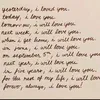 yesterday, i loved you.
today, i love you.
tomorrow, i will love you.
next week, i will love you.
when i get home, i will love you.
in june, i will love you.
on september 5th, i will love you.
next year, i will love you.
in five years, i will love you.
for the rest of my life, i will love you.
forever, always, i love you!